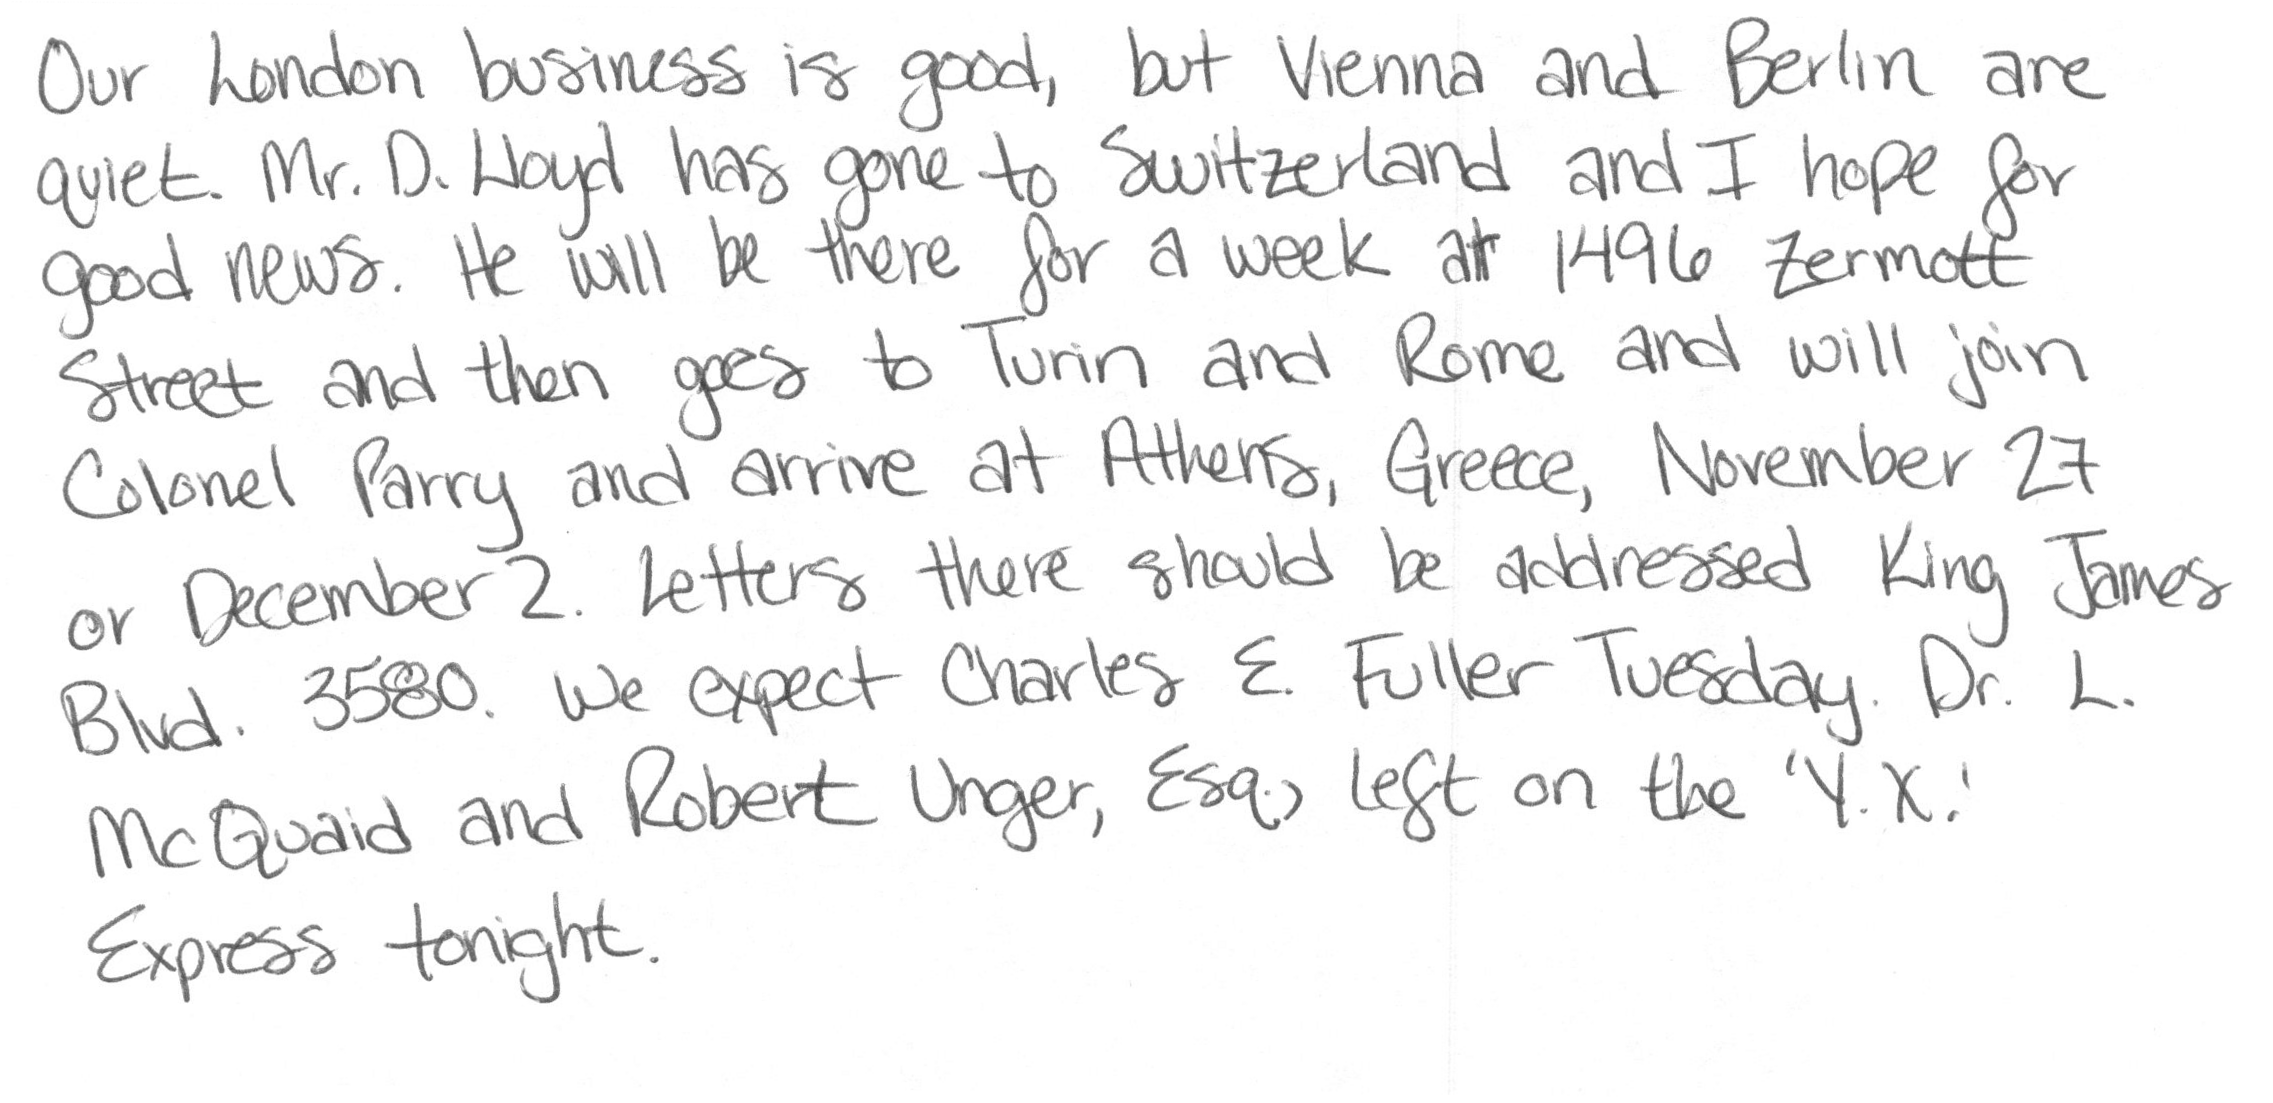 Our London business is good, but Vienna and Berlin are
quiet. Mr. D. Lloyd has gone to Switzerland and I hope for
good news. He will be there for a week at 1496 Zermott
Street and then goes to Turin and Rome and will join
Colonel Parry and arrive at Athens, Greece, November 27
or December 2. Letters there should be addressed King James
Blvd. 3580. We expect Charles E. Fuller Tuesday. Dr. L.
McQuaid and Robert Unger, Esq., left on the 'Y.X.'
Express tonight.